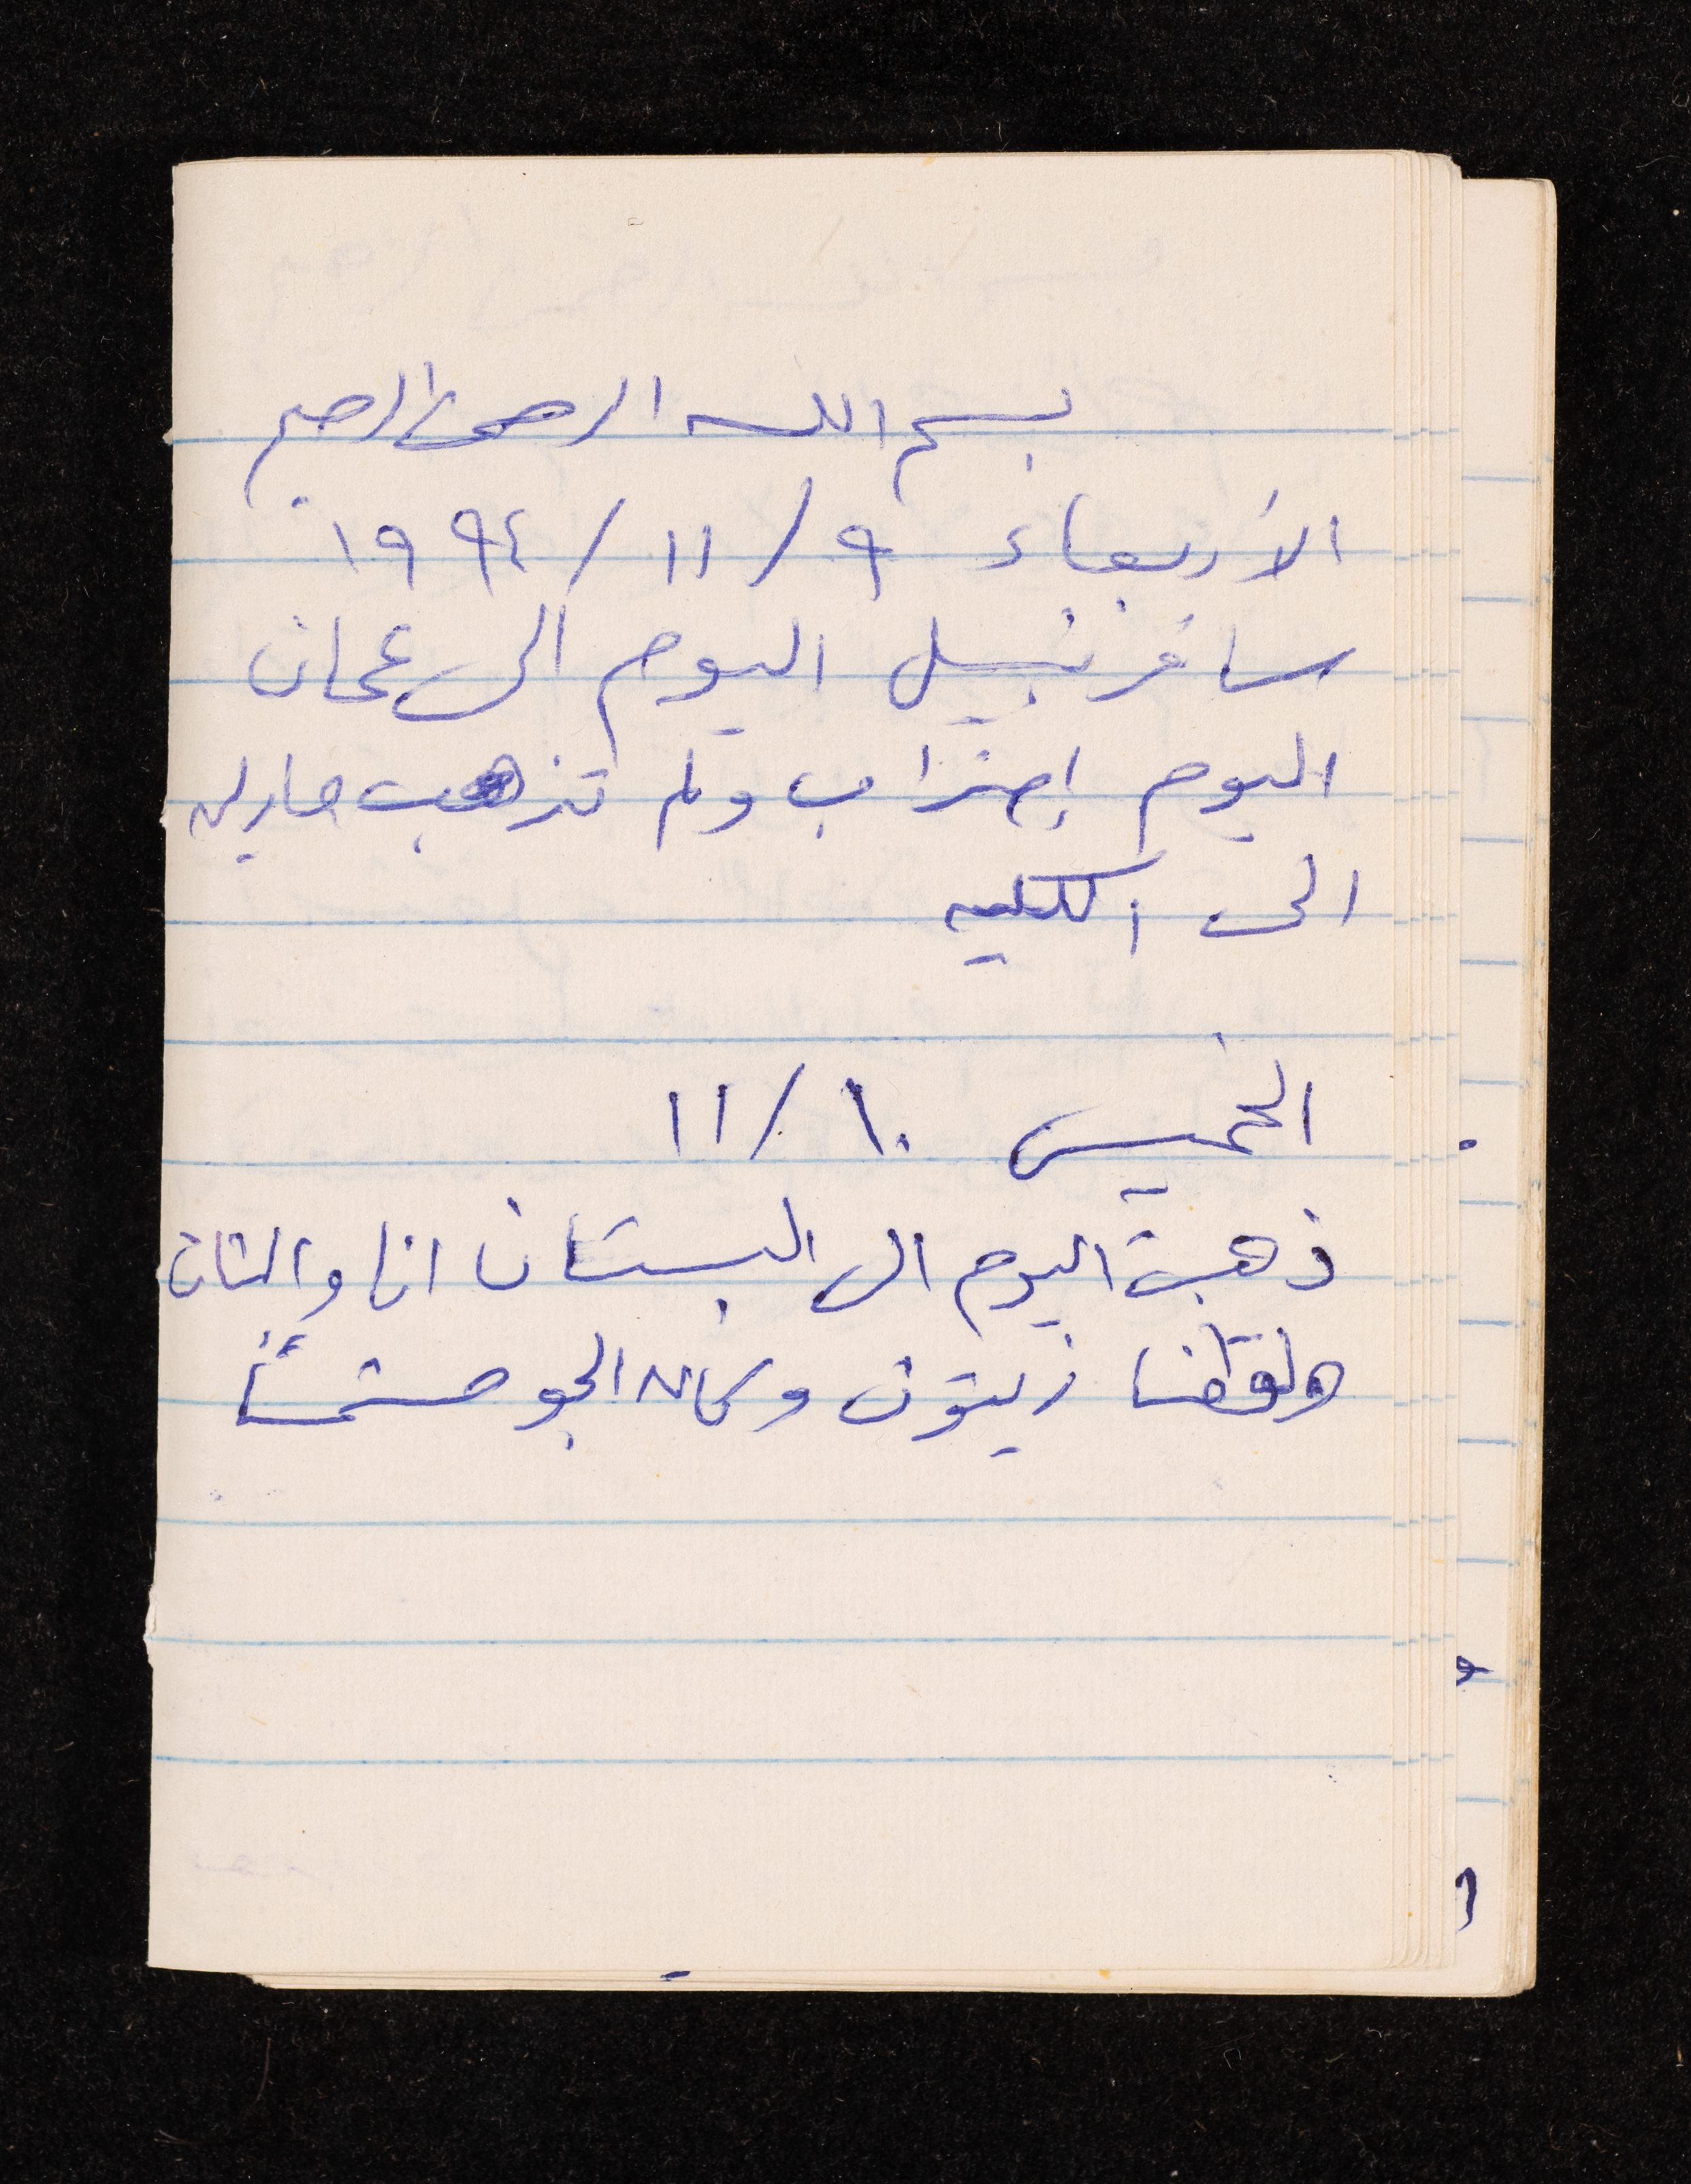 بسم الله الرحمن الرحيم
الأربعاء ٩/ ١١/ ١٩٩٤
سافر نبيل اليوم الى عمان
اليوم إضراب ولم تذهب
الى الكليه
الخميس ١٠/ ١١
ذهبت اليوم الى البستان انا
ولقطنا زيتون وكان الجو مشمساً